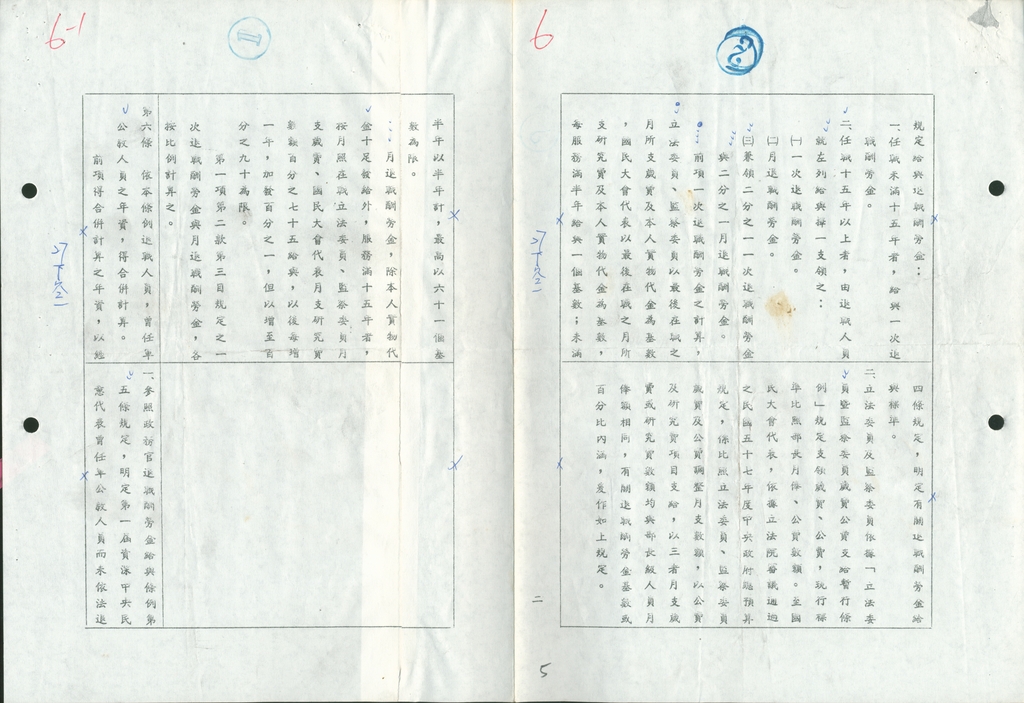 6
規定給與退職酬勞金：
一、任職未滿十五年者，給與一次退
職酬勞金。
二、任職十五年以上者，由退職人員
就左列給與擇一支領之：
㈠一次退職酬勞金。
㈡月退職酬勞金。
㈢兼領二分之一一次退職酬勞金
與二分之一月退職酬勞金。
前項一次退職酬勞金之計算，
立法委員、監察委員以最後在職之
月所支歲費及本人實物代金為基數
，國民大會代表以最後在職之月所
支研究費及本人實物代金為基數，
每服務滿半年給與一個基數；未滿
四條規定，明定有關退職酬勞金給
與標準。
二、立法委員及監察委員依據「立法委
員暨監察委員歲費公費支給暫行條
例」規定支領歲費、公費，現行標
準比照部長月俸、公費數額。至國
民大會代表，依據立法院審議通過
之民國五十七年度中央政府總預算
規定，係比照立法委員、監察委員
歲費及公費調整月支數額，以公費
及研究費項目支給，以三者月支歲
費或研究費數額均與部長級人員月
俸額相同，有關退職酬勞金基數或
百分比內涵，爰作如上規定。
二
5
6-1
半年以半年計，最高以六十一個基
數為限。
月退職酬勞金，除本人實物代
金十足發給外，服務滿十五年者，
按月照在職立法委員、監察委員月
支歲費、國民大會代表月支研究費
數額百分之七十五給與，以後每增
一年，加發百分之一，但以增至百
分之九十為限。
第一項第二款第三目規定之一
次退職酬勞金與月退職酬勞金，各
按比例計算之。
第六條　依本條例退職人員，曾任軍
公教人員之年資，得合併計算。
前項得合併計算之年資，以經
一、參照政務官退職酬勞金給與條例第
五條規定，明定第一屆資深中央民
意代表曾任軍公教人員而未依法退